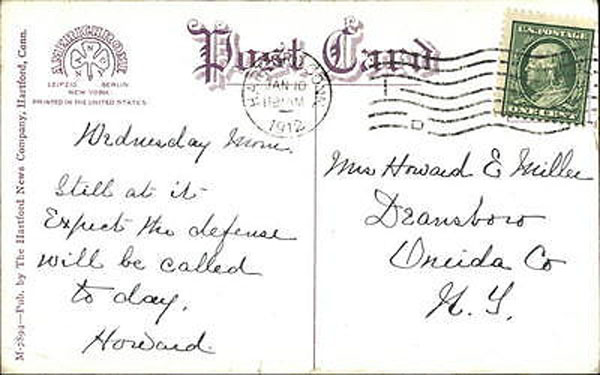 M-2894—Pub. by The Hartford News Company, Hartford, Conn.
AMERICHROME
T N D
LEIPZIG BERLIN
NEW YORK
PRINTED IN THE UNITED STATES
Post Card
CONN.
JAN 10
1912
D
U.S. POSTAGE
Wednesday Morn.
Still at it
Expect the defense
will be called
to day.
Howard.
Mrs Howard E Miller
Deansboro
Oneida Co
N.Y.